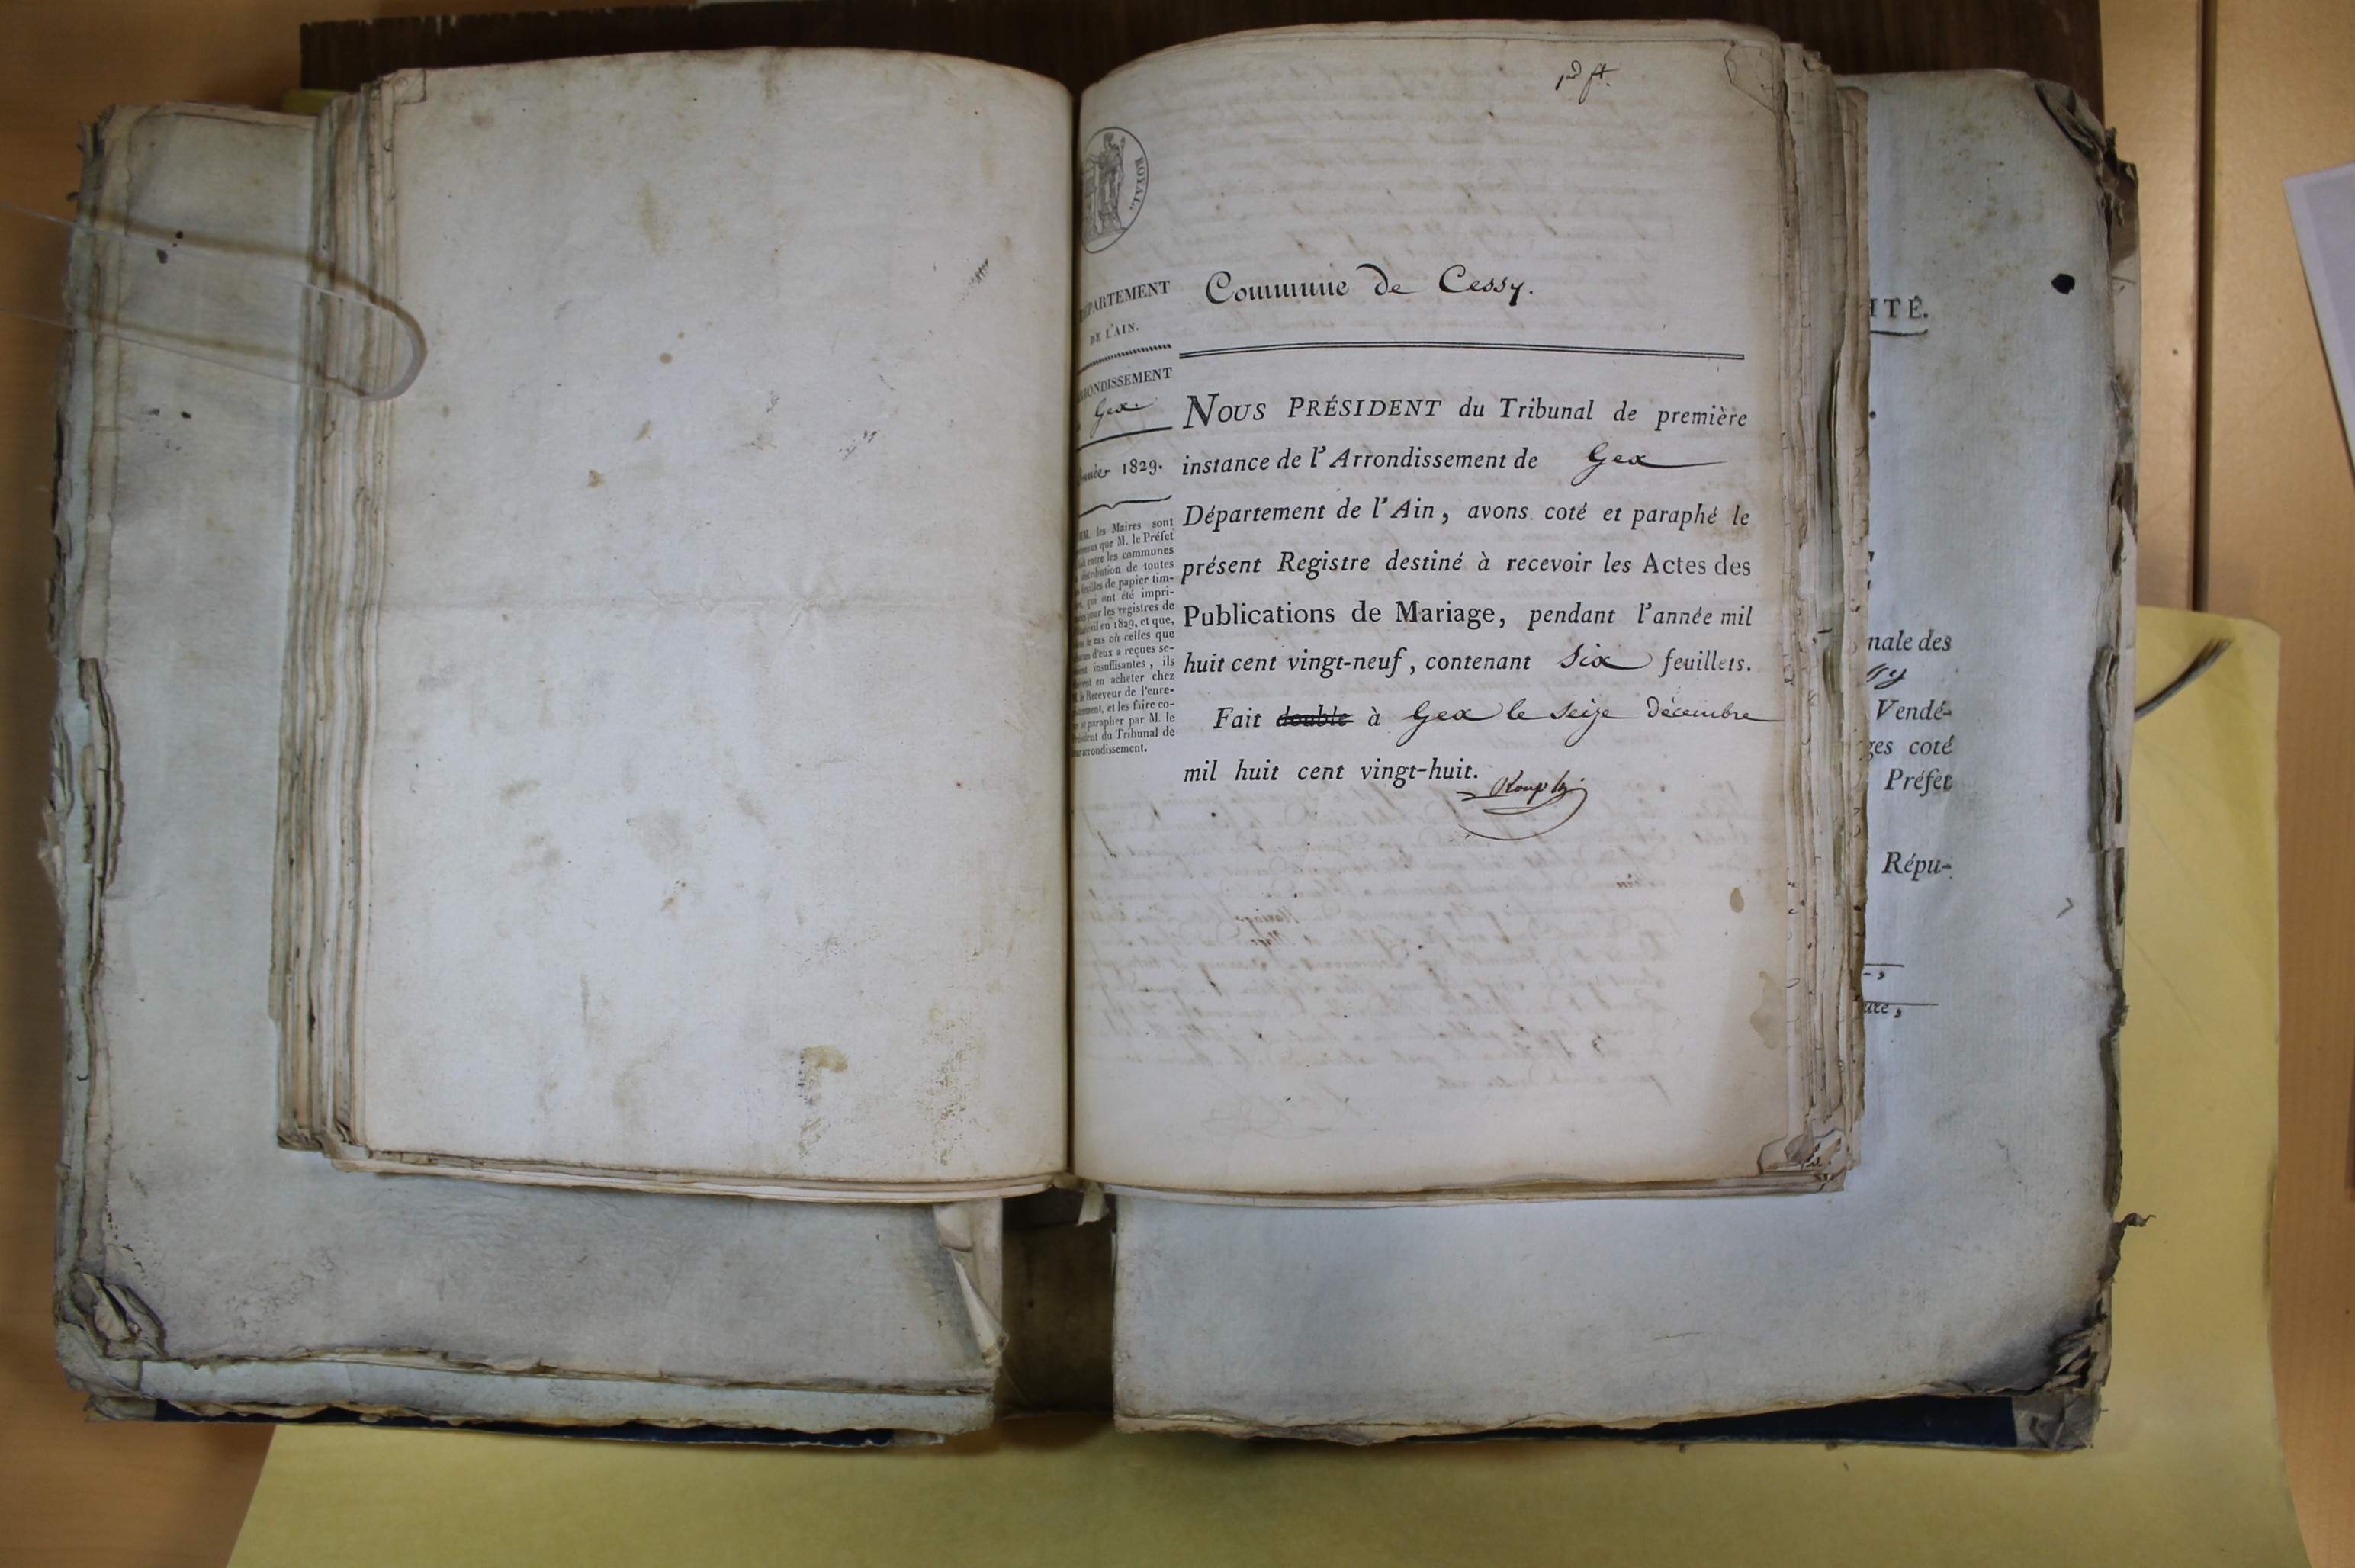 1er ft.
ROYAL.
Commune de Cessy.
DÉPARTEMENT
DE L'AIN.
ARRONDISSEMENT
Gex.
Année 1829.
MM. les Maires sont
que M. le Préfet
entre les communes
distribution de toutes
feuilles de papier tim-
qui ont été impri-
pour les registres de
en 1829, et que,
le cas où celles que
d'eux a reçues se-
insuffisantes, ils
en acheter chez
le Receveur de l'enre-
et les faire co-
et parapher par M. le
du Tribunal de
arrondissement.
NOUS PRÉSIDENT du Tribunal de première
instance de l'Arrondissement de Gex
Département de l'Ain, avons coté et paraphé le
présent Registre destiné à recevoir les Actes des
Publications de Mariage, pendant l'année mil
huit cent vingt-neuf, contenant Six feuillets.
Fait double à Gex le Seize décembre
mil huit cent vingt-huit.
ITÉ.
nale des
Vendé-
ges coté
Préfet
Répu-